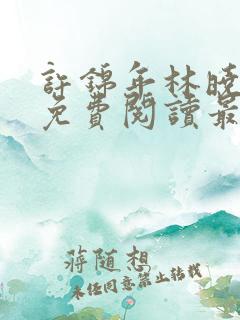 許錦年林曉
免費閱讀最
蔣隨想
未经同意禁止转载